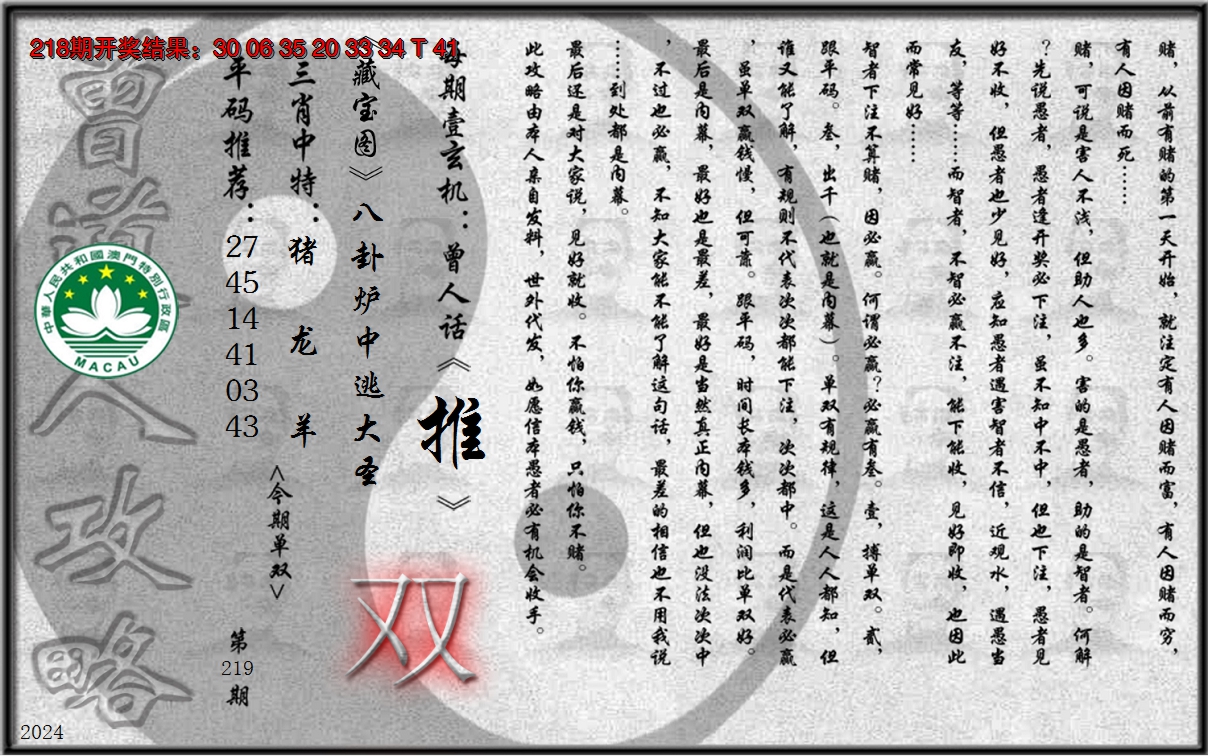 218期开奖结果：30 06 35 20 33 34 T 41
赌，从前有赌的第一天开始，就注定有人因赌而富，有人因赌而穷，
有人因赌而死……
赌，可说是害人不浅，但助人也多。害的是愚者，助的是智者。何解
？先说愚者，愚者逢开奖必下注，虽不知中不中，但也下注，愚者见
好不收，但愚者也少见好，应知愚者遇害智者不信，近观水，遇愚当
友，等等……而智者，不智必赢不注，能下能收，见好即收，也因此
而常见好……
智者下注不算赌，因必赢。何谓必赢？必赢有叁。壹，搏单双。贰，
跟平码。叁，出千（也就是内幕）。单双有规律，这是人人都知，但
谁又能了解，有规则不代表次次都能下注，次次都中。而是代表必赢
，虽单双赢钱慢，但可靠。跟平码，时间长本钱多，利润比单双好。
最后是内幕，最好也是最差，最好是当然真正内幕，但也没法次次中
，不过也必赢，不知大家能不能了解这句话，最差的相信也不用我说
……到处都是内幕。
最后还是对大家说，见好就收。不怕你赢钱，只怕你不赌。
此攻略由本人亲自发料，世外代发，如愿信本愚者必有机会收手。
每期壹玄机：曾人话《推》
《藏宝图》八卦炉中逃大圣
双
三肖中特：猪 龙 羊
<今期单双>
平码推荐：27 45 14 41 03 43
第219期
曾道人攻略
中華人民共和國澳門特別行政區
MACAU
2024